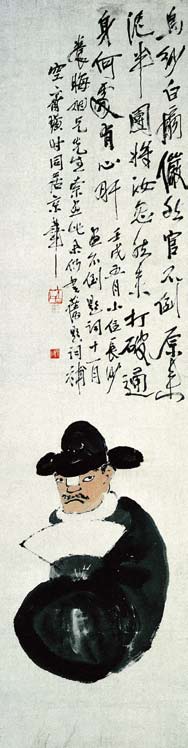 烏紗白扇儼然官不倒原來
泥半團將汝忽然來打破通
身何處有心肝
壬戌五月小住長沙
畫不倒題詞十一月
兄先生索畫此余仍書舊題詞補
空齊璜時同居京華